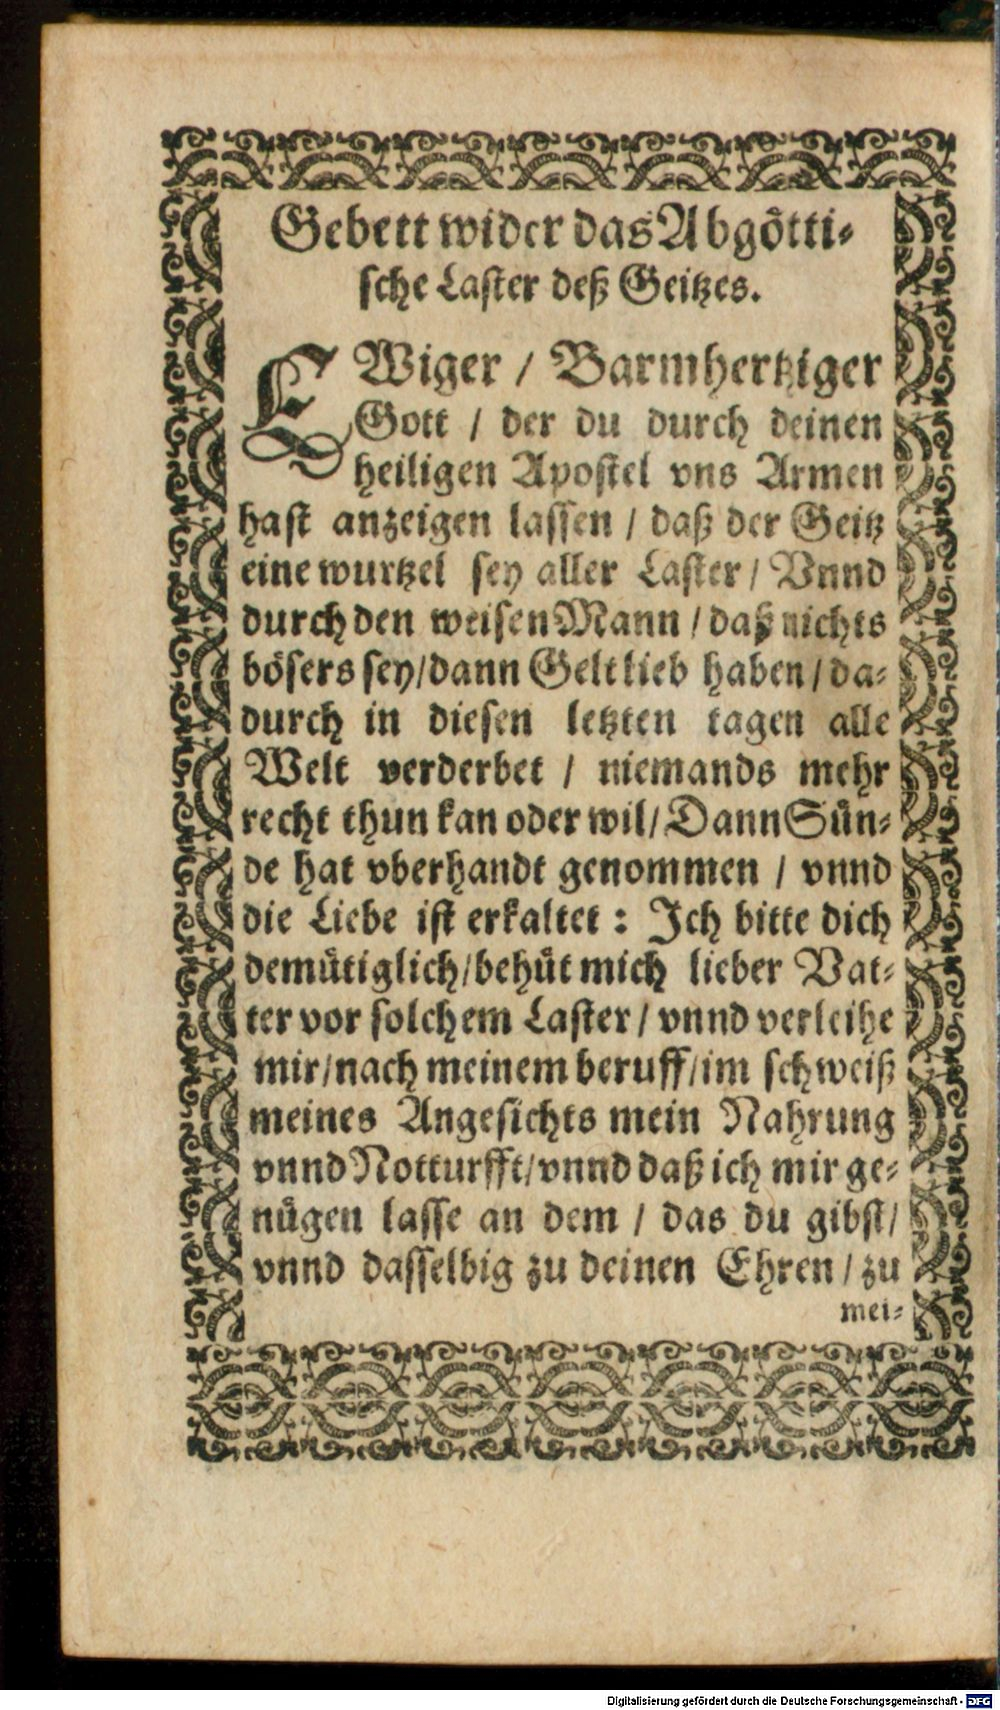 Gebett wider das Abgötti-
sche Laster deß Geitzes.
EWiger / Barmhertziger
Gott / der du durch deinen
heiligen Apostel vns Armen
hast anzeigen lassen / daß der Geitz
eine wurtzel sey aller Laster / Vnnd
durch den weisen Mann / daß nichts
bösers sey / dann Gelt lieb haben / da-
durch in diesen letzten tagen alle
Welt verderbet / niemands mehr
recht thun kan oder wil / Dann Sün-
de hat vberhandt genommen / vnnd
die Liebe ist erkaltet : Ich bitte dich
demütiglich / behüt mich lieber Vat-
ter vor solchem Laster / vnnd verleihe
mir / nach meinem beruff / im schweiß
meines Angesichts mein Nahrung
vnnd Notturfft / vnnd daß ich mir ge-
nügen lasse an dem / das du gibst /
vnnd dasselbig zu deinen Ehren / zu
mei-
Digitalisierung gefördert durch die Deutsche Forschungsgemeinschaft - DFG